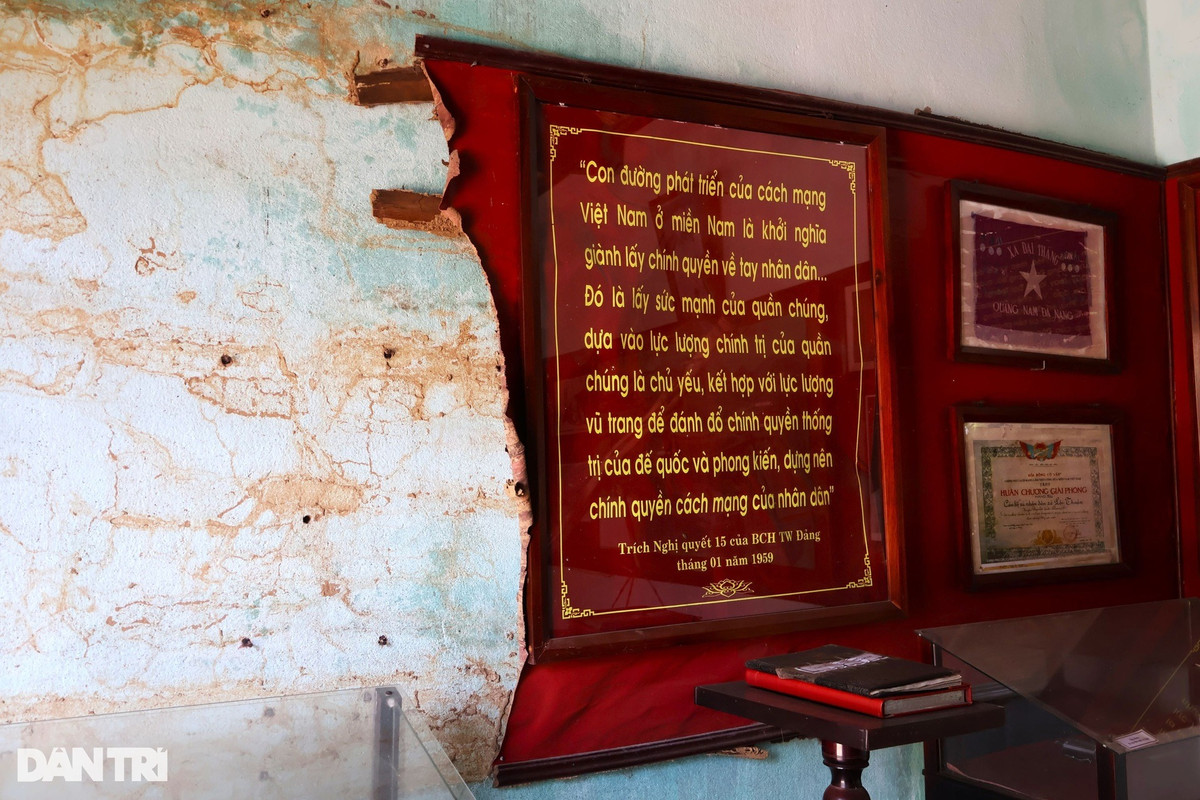 “Con đường phát triển của cách mạng
Việt Nam ở miền Nam là khởi nghĩa
giành lấy chính quyền về tay nhân dân...
Đó là lấy sức mạnh của quần chúng,
dựa vào lực lượng chính trị của quần
chúng là chủ yếu, kết hợp với lực lượng
vũ trang để đánh đổ chính quyền thống
trị của đế quốc và phong kiến, dựng nên
chính quyền cách mạng của nhân dân”
Trích Nghị quyết 15 của BCH TW Đảng
tháng 01 năm 1959
XÃ ĐẠI THẮNG
QUẢNG NAM ĐÀ NẴNG
HUÂN CHƯƠNG GIẢI PHÓNG
DÂN TRÍ